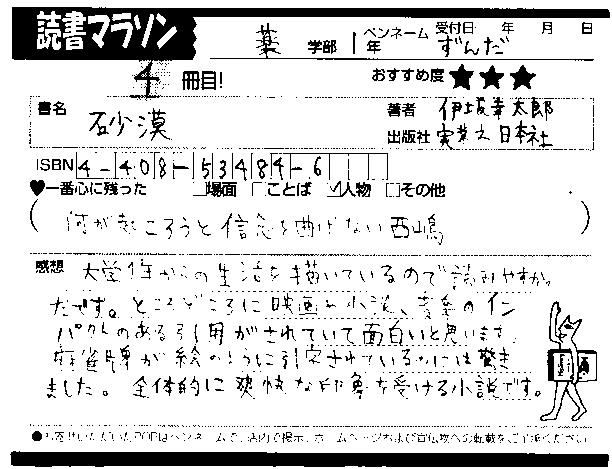 読書マラソン
薬 学部 1年 ペンネーム ずんだ 受付日 年 月 日
4 冊目! おすすめ度 ★★★
書名 砂漠
著者 伊坂幸太郎
出版社 実業之日本社
ISBN 4-408-53484-6
♥一番心に残った □場面 □ことば ☑人物 □その他
(何が起ころうと信念を曲げない西嶋)
感想 大学1年からの生活を描いているので読みやすかっ
たです。ところどころに映画や小説、音楽のイン
パクトのある引用がされていて面白いと思います。
麻雀牌が絵のように引用されているのには驚き
ました。全体的に爽快な印象を受ける小説です。
●お寄せいただいたPOPはペンネームで、店内で掲示、ホームページおよび宣伝物への転載をご了承ください